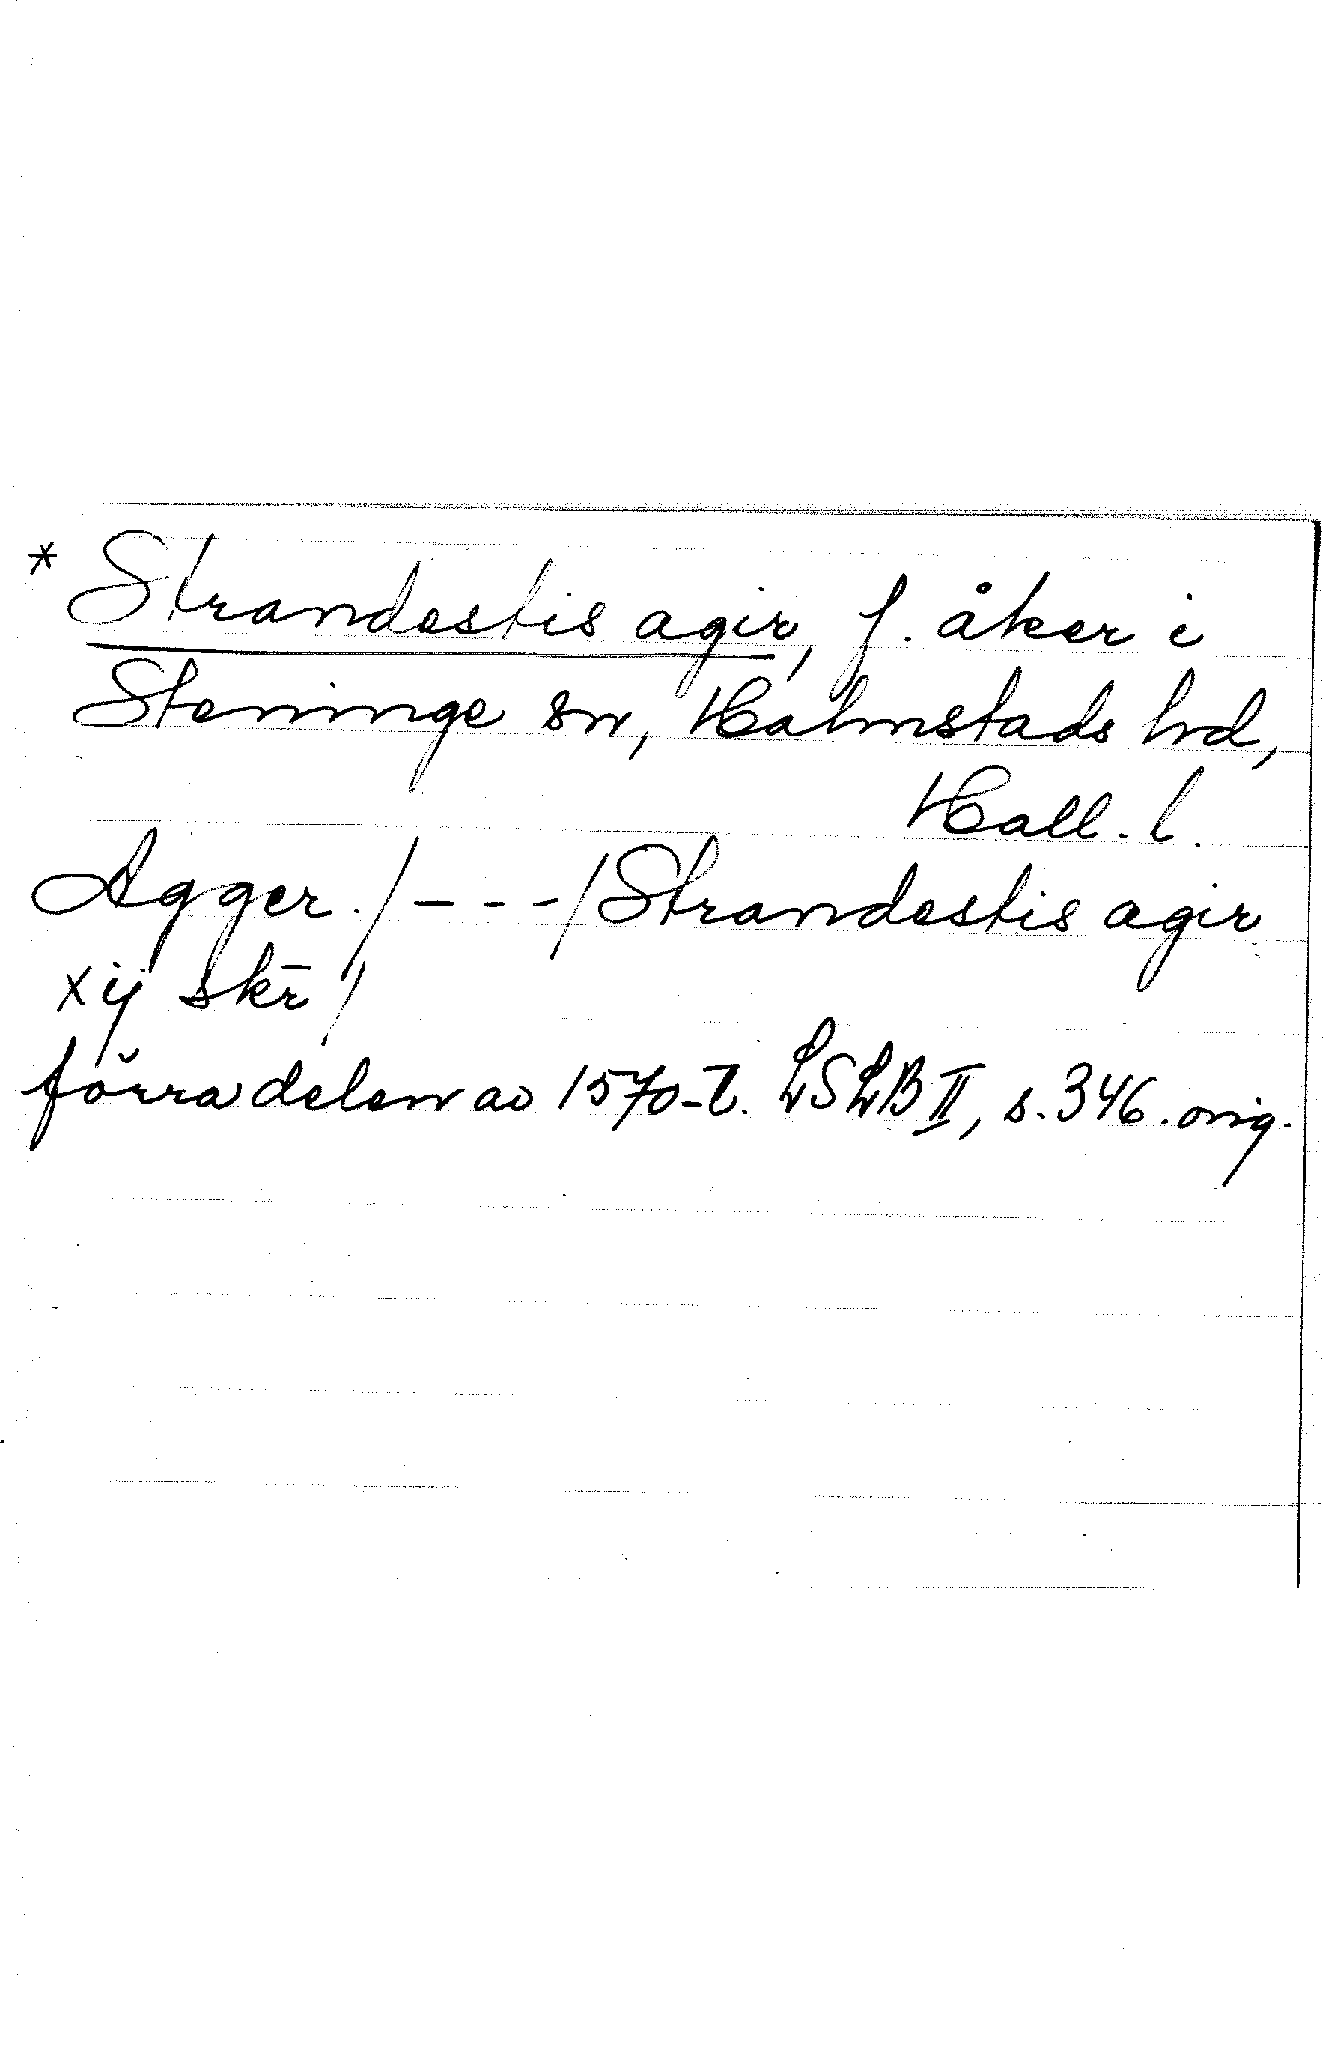 * Strandestis agir, f. åker i
Steninge sn, Halmstads hrd,
Hall. l.
Agger. /---/ Strandestis agir
xij skr̄ /
förra delen av 1570-t. LSLB II, s. 346. orig.